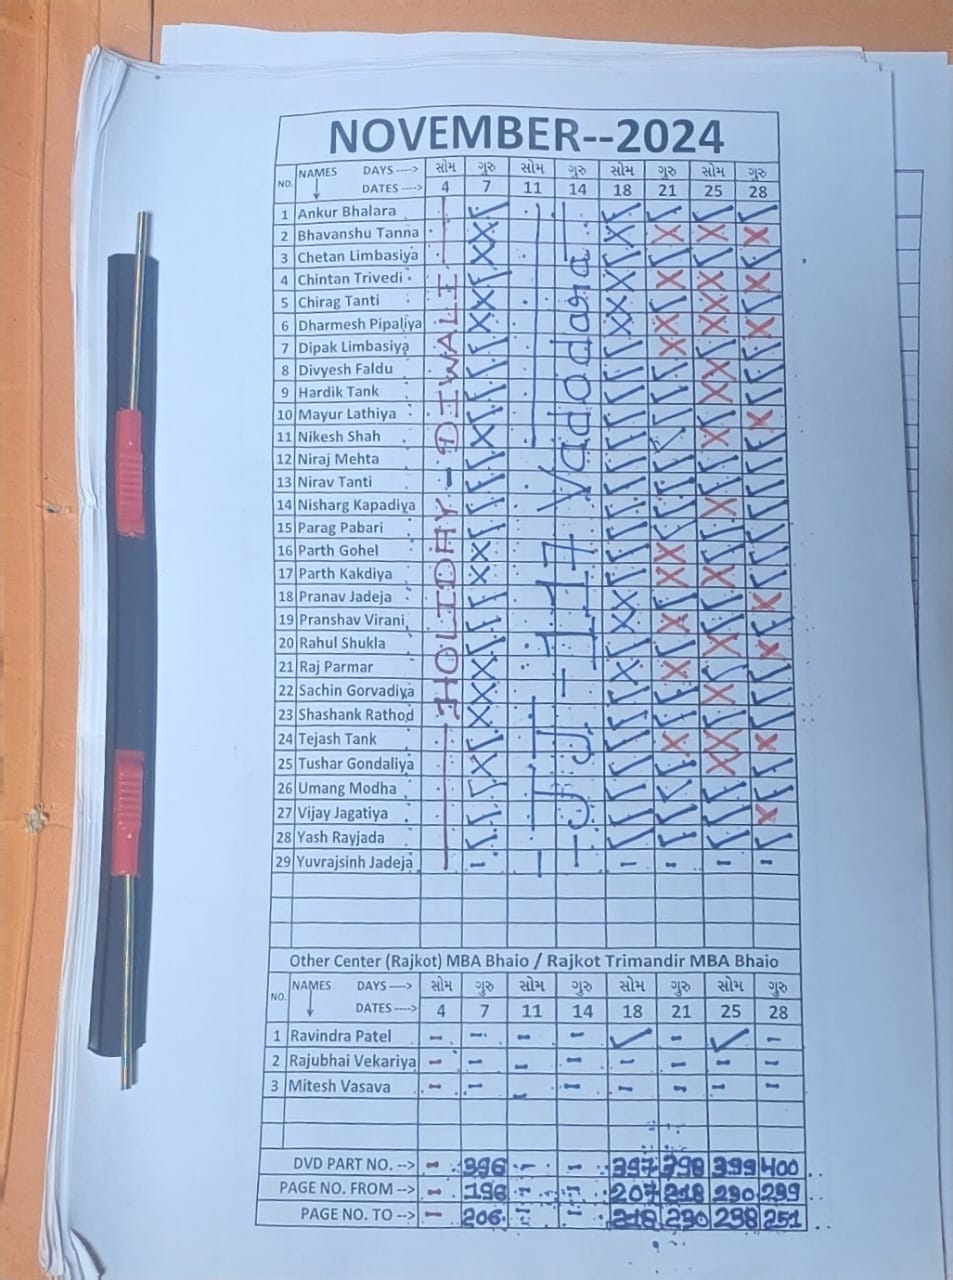 NOVEMBER--2024
NO. NAMES DAYS ---> સોમ ગુરુ સોમ ગુરુ સોમ ગુરુ સોમ ગુરુ
DATES ---> 4 7 11 14 18 21 25 28
1 Ankur Bhalara
2 Bhavanshu Tanna
3 Chetan Limbasiya
4 Chintan Trivedi
5 Chirag Tanti
6 Dharmesh Pipaliya
7 Dipak Limbasiya
8 Divyesh Faldu
9 Hardik Tank
10 Mayur Lathiya
11 Nikesh Shah
12 Niraj Mehta
13 Nirav Tanti
14 Nisharg Kapadiya
15 Parag Pabari
16 Parth Gohel
17 Parth Kakdiya
18 Pranav Jadeja
19 Pranshav Virani
20 Rahul Shukla
21 Raj Parmar
22 Sachin Gorvadiya
23 Shashank Rathod
24 Tejash Tank
25 Tushar Gondaliya
26 Umang Modha
27 Vijay Jagatiya
28 Yash Rayjada
29 Yuvrajsinh Jadeja
HOLIDAY - DIWALI
JJ - 117 Vadodara
Other Center (Rajkot) MBA Bhaio / Rajkot Trimandir MBA Bhaio
NO. NAMES DAYS ---> સોમ ગુરુ સોમ ગુરુ સોમ ગુરુ સોમ ગુરુ
DATES ---> 4 7 11 14 18 21 25 28
1 Ravindra Patel
2 Rajubhai Vekariya
3 Mitesh Vasava
DVD PART NO. --> - 396 - - 397 398 399 400
PAGE NO. FROM --> - 196 - - 207 218
PAGE NO. TO --> - 206 - - 218